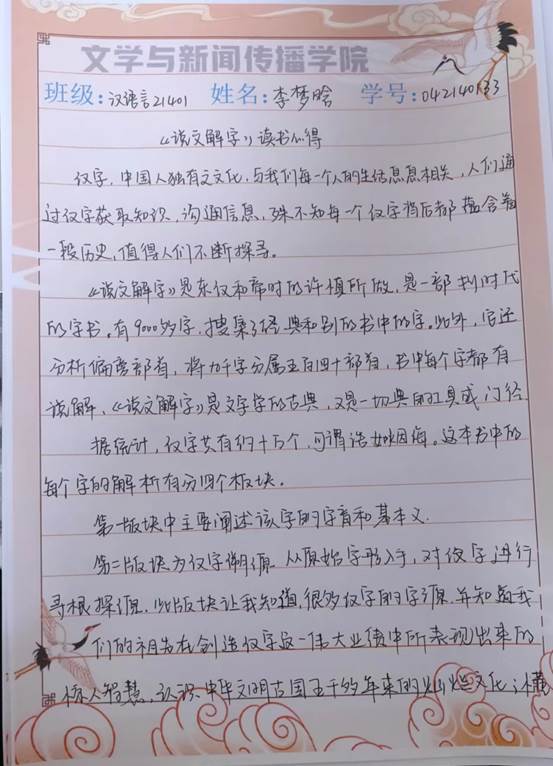 文学与新闻传播学院
班级：汉语言21401 姓名：李梦晗 学号：042140133
《说文解字》读书心得
汉字，中国人独有之文化，与我们每一个人的生活息息相关，人们通
过汉字获取知识，沟通信息，殊不知每一个汉字背后都蕴含着
一段历史，值得人们不断探寻。
《说文解字》是东汉和帝时的许慎所做，是一部划时代
的字书。有9000多字，搜集了经典和别的书中的字。此外，它还
分析偏旁部首，将九千字分属五百四十部首，书中每个字都有
说解，《说文解字》是文字学的古典，又是一切典的工具或门径
据统计，汉字共有约十万个，可谓浩如烟海。这本书中的
每个字的解析有分四个板块。
第一版块中主要阐述该字的字音和基本义
第二版块为汉字溯源 从原始字形入手，对汉字进行
寻根探源，此版块让我知道，很多汉字的字源，并知道我
们的祖先在创造汉字这一伟大业绩中所表现出来的
惊人智慧，认识中华文明古国五千多年来的灿烂文化；